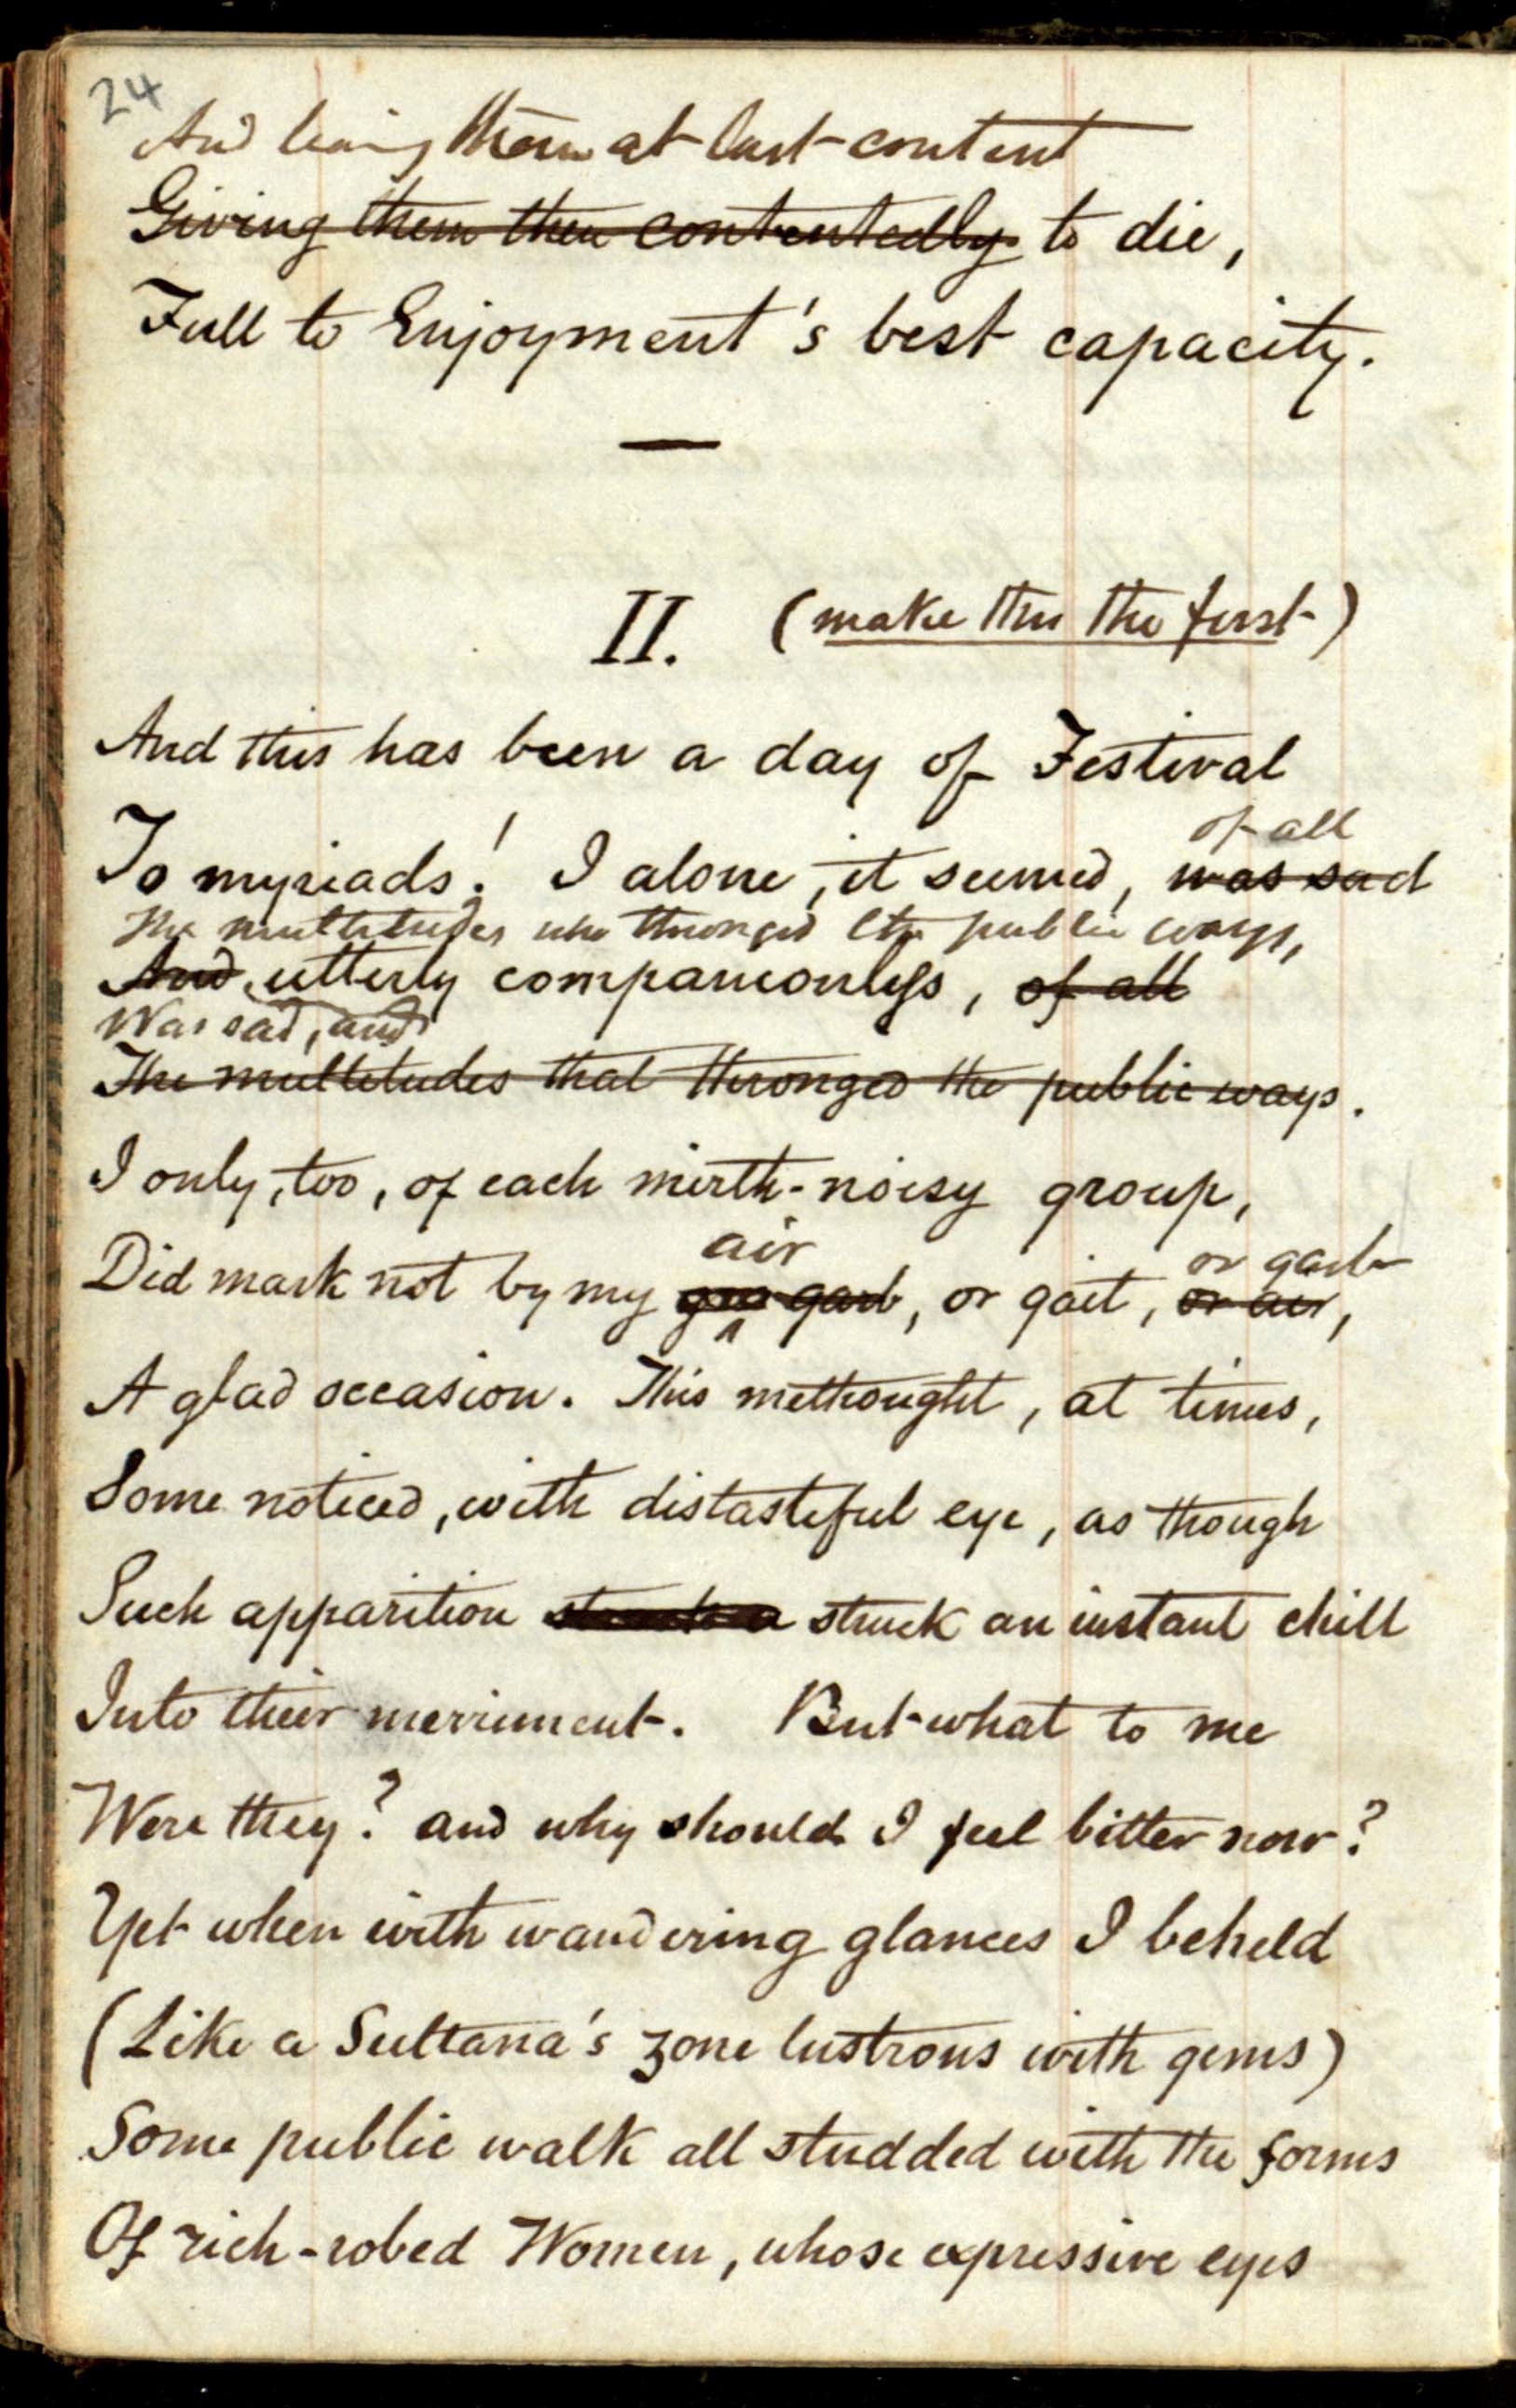 24
And leaving them at last content
Giving them then contentedly to die,
Full to Enjoyment's best capacity.
II. (make this the first)
And this has been a day of Festival
of all
To myriads! I alone, it seemed, was sad
The multitudes who thronged the public ways,
And utterly companionless, of all
Was sad, and
The multitudes that thronged the public ways.
I only, too, of each mirth-noisy group,
air or garb
Did mark not by my garb, or gait, or air,
A glad occasion. This methought, at times,
Some noticed, with distasteful eye, as though
Such apparition struck an instant chill
Into their merriment. But what to me
Were they? and why should I feel bitter now?
Yet when with wandering glances I beheld
(Like a Sultana's zone lustrous with gems)
Some public walk all studded with the forms
Of rich-robed Women, whose expressive eyes